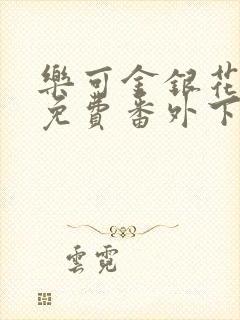 樂可金銀花
免費番外下
雲霓